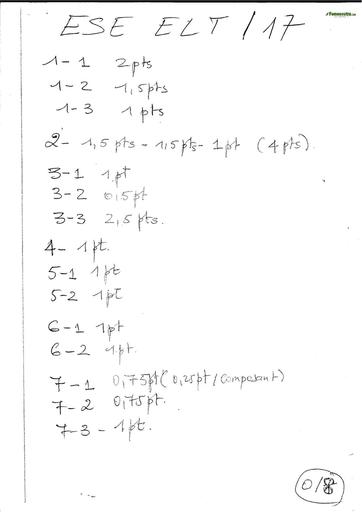 ESE ELT/17
1-1 2pts
1-2 1,5pts
1-3 1pts
2- 1,5pts - 1,5pts- 1pt (4pts).
3-1 1pt
3-2 0,5pt
3-3 2,5pts.
4- 1pt.
5-1 1pt
5-2 1pt
6-1 1pt
6-2 1pt.
7-1 0,75pt(0,25pt/composant)
7-2 0,75pt.
7-3 - 1pt.